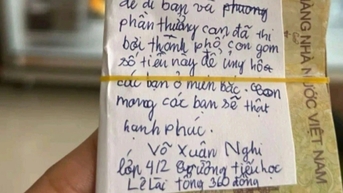 để đi bạn và phương
phần thưởng con đã thi
bơi thành phố, con gom
số tiền này để ủng hộ
các bạn ở miền Bắc. Con
mong các bạn sẽ thật
hạnh phúc.
Võ Xuân Nghi
lớp 4/2 trường tiểu học
Lê Lai tổng 360 đồng
HÀNG NHÀ NƯỚC VIỆT NAM